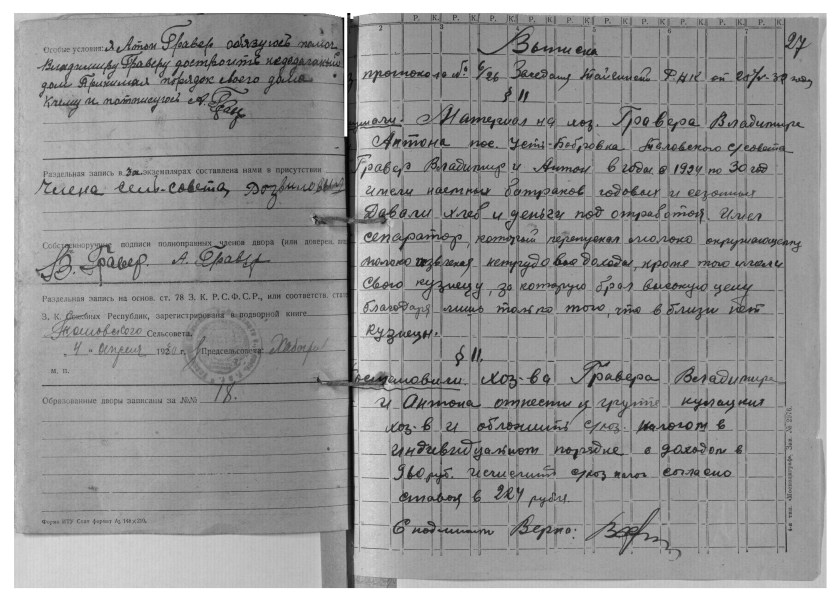 Особые условия: я Антон Гравер обязуюсь помочь
Владимиру Граверу достроить недоделанный
дом Принимая порядок своего дома
К чему и
А. Гра
Раздельная запись в 3х экземплярах составлена нами в присутствии
Члена сель-совета
Собственноручные подписи полноправных членов двора (или доверен
В. Гравер. А. Гравер
Раздельная запись на основ. ст. 78 З. К. Р.С.Ф.С.Р., или соответств. ст
З. К. Союзных Республик, зарегистрирована в подворной книге
Сельсовета.
"4" апреля 1930 г. Предсельсовета:
м. п.
Образованные дворы записаны за №№ 18.
Форма НТУ Сант формат
27
Р. К. Р. К. Р. К. Р. К. Р. К.
3 4 5 6 7
Выписка
протокола № 6/26 Заседания РНК от
§ 11
Материал на хоз. Гравера Владимира
Антона пос. Усть-Бобровка Таловского с/совета
Гравер Владимир и Антон в годах с 1924 по 30 год
имели наемных батраков годовых и сезонных
давали хлеб и деньги под отработок. Имел
сепаратор, который перепускал молоко окружающему
молоко нетрудовые доходы, кроме того имели
свою кузницу, за которую брал высокую цену
благодаря лишь только того, что в близи нет
кузницы.
§ 11.
Постановили хоз-ва Гравера Владимира
и Антона отнести к группе кулацких
хоз-в и обложить с/хоз. налогом в
индивидуальном порядке с доходом в
960 руб. исчислить с/хоз налог согласно
ставок в 224 рубля
С подлинным Верно: